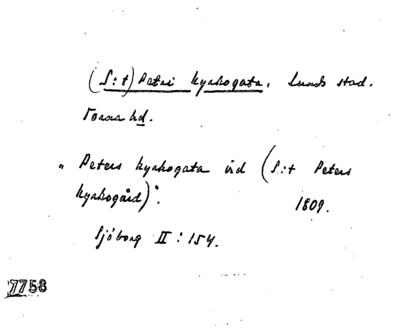 (S:t) Petri kyrkogata, Lunds stad.
Torna hd.
"Peters kyrkogata vid (S:t Peters
kyrkogård)".
1809.
Sjöborg II:154.
7758